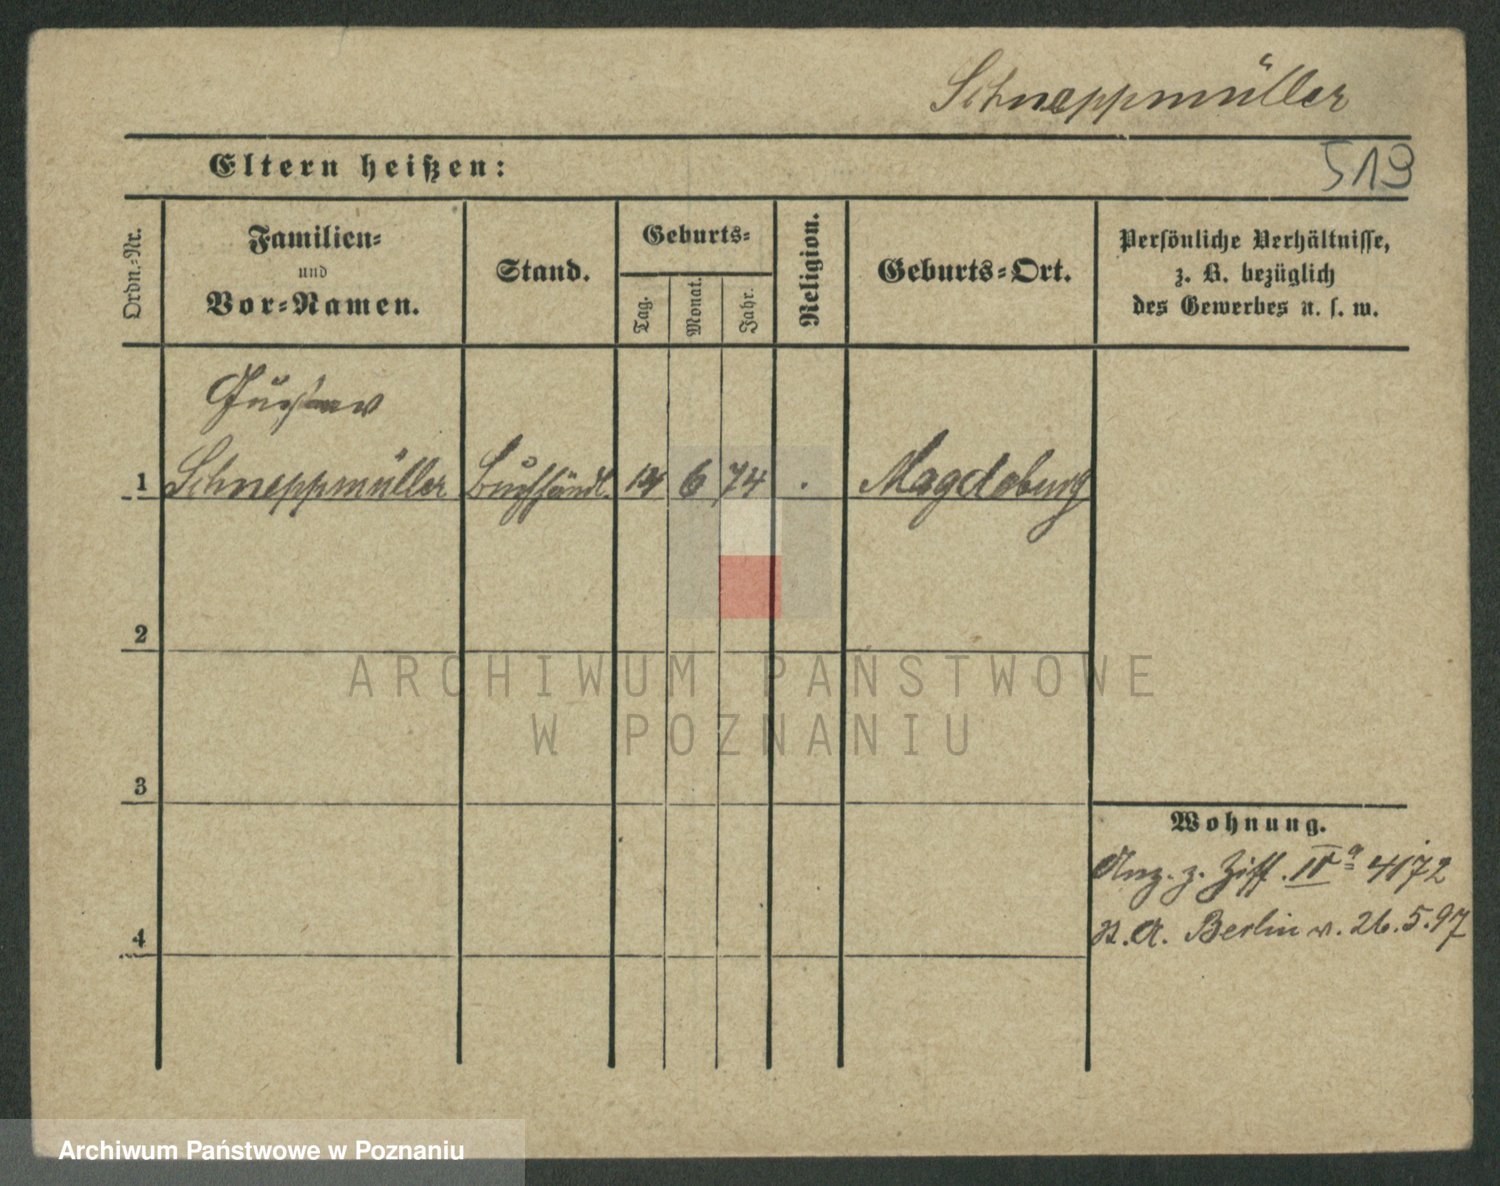 Schneppmüller
519
Eltern heißen:
Ordn.-Nr.
Familien-
und
Vor-Namen.
Stand.
Geburts-
Tag.
Monat.
Jahr.
Religion.
Geburts-Ort.
Persönliche Verhältnisse,
z. B. bezüglich
des Gewerbes u. s. w.
Gustav
1 Schneppmüller Buchhändl. 6 74 Magdeburg
2
ARCHIWUM PAŃSTWOWE
W POZNANIU
3
Wohnung.
Anz. z. Ziff. IV a 4172
4
P. A. Berlin v. 26.5.97
Archiwum Państwowe w Poznaniu